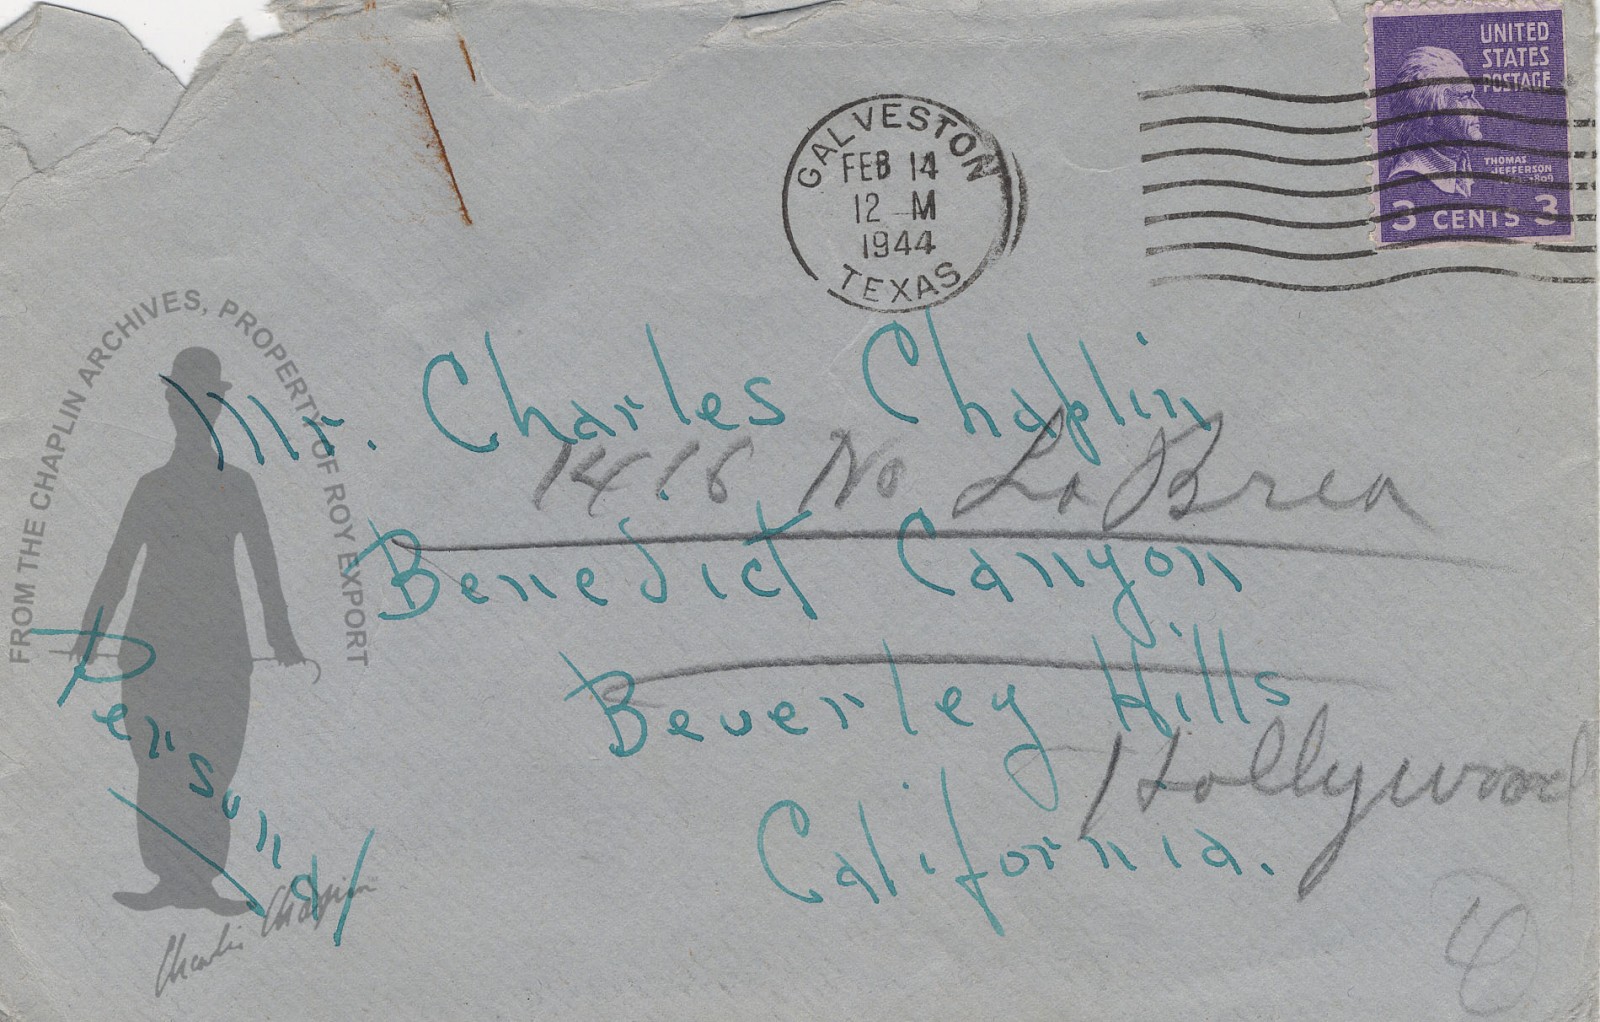 UNITED
STATES
POSTAGE
THOMAS
JEFFERSON
3 CENTS 3
GALVESTON
FEB 14
12 M
1944
TEXAS
FROM THE CHAPLIN ARCHIVES, PROPERTY OF ROY EXPORT
Mr. Charles Chaplin
1416 No La Brea
Benedict Canyon
Beverley Hills
Hollywood
California.
Personal
Charlie Chaplin